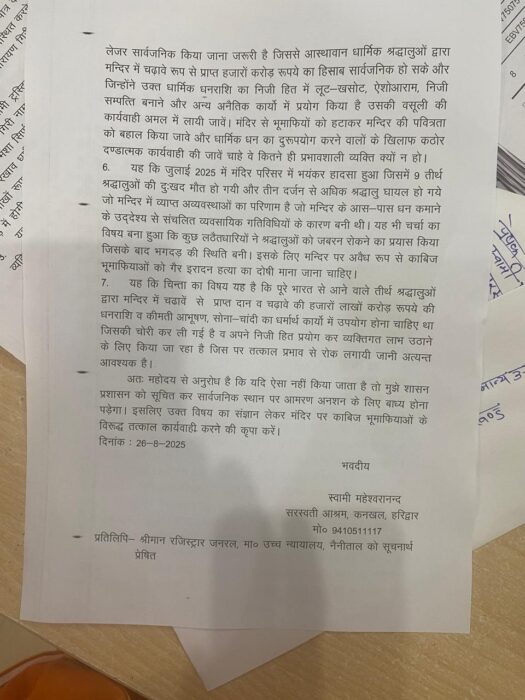 लेजर सार्वजनिक किया जाना जरूरी है जिससे आस्थावान धार्मिक श्रद्धालुओं द्वारा
मन्दिर में चढ़ावे रूप से प्राप्त हजारों करोड़ रूपये का हिसाब सार्वजनिक हो सके और
जिन्होंने उक्त धार्मिक धनराशि का निजी हित में लूट-खसोट, ऐशोआराम, निजी
सम्पत्ति बनाने और अन्य अनैतिक कार्यो में प्रयोग किया है उसकी वसूली की
कार्यवाही अमल में लायी जावें। मंदिर से भूमाफियों को हटाकर मन्दिर की पवित्रता
को बहाल किया जावे और धार्मिक धन का दुरूपयोग करने वालों के खिलाफ कठोर
दण्डात्मक कार्यवाही की जावें चाहे वे कितने ही प्रभावशाली व्यक्ति क्यों न हो।
6. यह कि जुलाई 2025 में मंदिर परिसर में भयंकर हादसा हुआ जिसमें 9 तीर्थ
श्रद्धालुओं की दुःखद मौत हो गयी और तीन दर्जन से अधिक श्रद्धालु घायल हो गये
जो मन्दिर में व्याप्त अव्यवस्थाओं का परिणाम है जो मन्दिर के आस-पास धन कमाने
के उद्देश्य से संचलित व्यवसायिक गतिविधियों के कारण बनी थी। यह भी चर्चा का
विषय बना हुआ कि कुछ लठैतधारियों ने श्रद्धालुओं को जबरन रोकने का प्रयास किया
जिसके बाद भगदड़ की स्थिति बनी। इसके लिए मन्दिर पर अवैध रूप से काबिज
भूमाफियाओं को गैर इरादन हत्या का दोषी माना जाना चाहिए।
7. यह कि चिन्ता का विषय यह है कि पूरे भारत से आने वाले तीर्थ श्रद्धालुओं
द्वारा मन्दिर में चढावें से प्राप्त दान व चढ़ावे की हजारों लाखों करोड़ रूपये की
धनराशि व कीमती आभूषण, सोना-चांदी का धर्मार्थ कार्यो में उपयोग होना चाहिए था
जिसकी चोरी कर ली गई है व अपने निजी हित प्रयोग कर व्यक्तिगत लाभ उठाने
के लिए किया जा रहा है जिस पर तत्काल प्रभाव से रोक लगायी जानी अत्यन्त
आवश्यक है।
अतः महोदय से अनुरोध है कि यदि ऐसा नहीं किया जाता है तो मुझे शासन
प्रशासन को सूचित कर सार्वजनिक स्थान पर आमरण अनशन के लिए बाध्य होना
पड़ेगा। इसलिए उक्त विषय का संज्ञान लेकर मंदिर पर काबिज भूमाफियाओं के
विरूद्ध तत्काल कार्यवाही करने की कृपा करें।
दिनांक : 26-8-2025
भवदीय
स्वामी महेश्वरानन्द
सरस्वती आश्रम, कनखल, हरिद्वार
मो० 9410511117
प्रतिलिपि- श्रीमान रजिस्ट्रार जनरल, मा० उच्च न्यायालय, नैनीताल को सूचनार्थ
प्रेषित